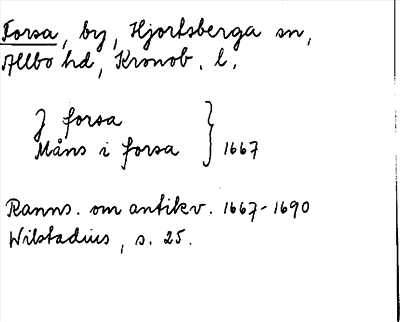 Forsa, by, Hjortsberga sn,
Allbo hd, Kronob. l.
J forsa
Måns i forsa } 1667
Ranns. om antikv. 1667-1690
Wilstadius, s. 25.